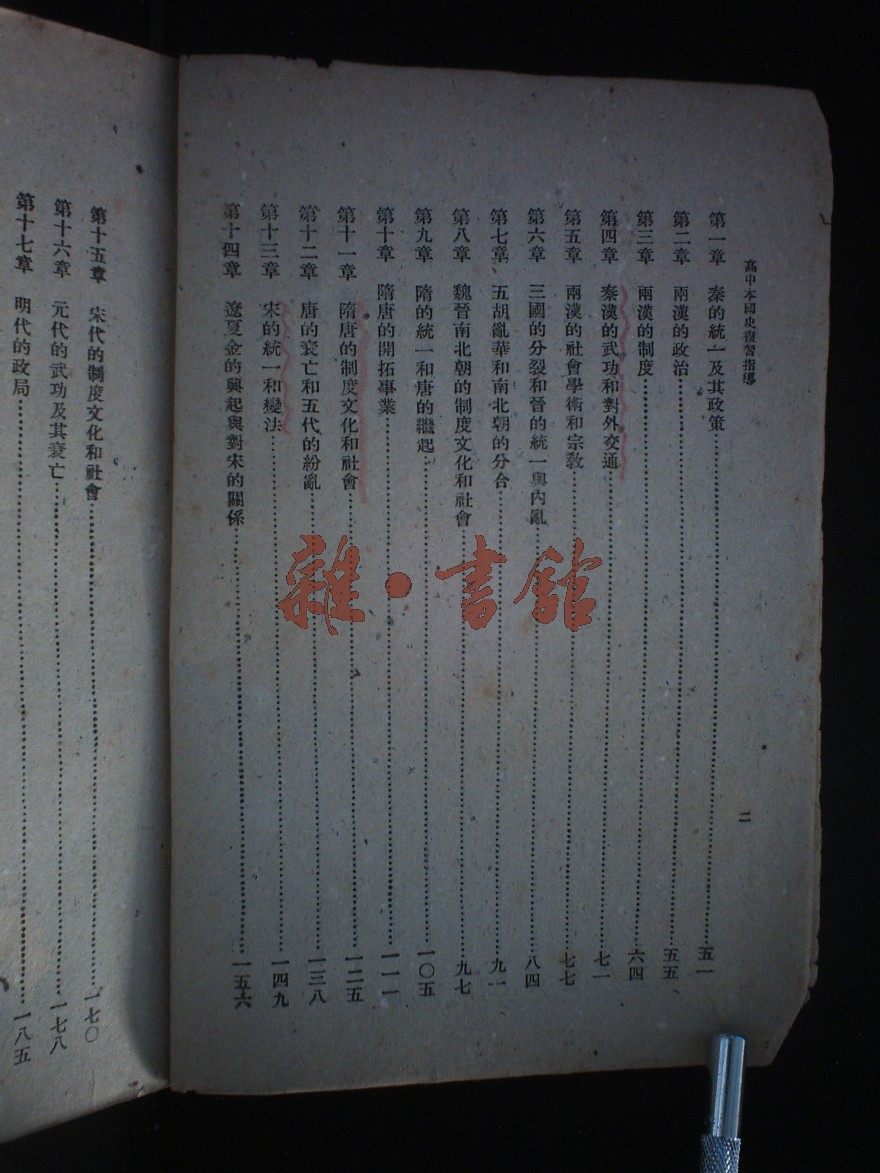 高中本國史複習指導
二
第一章 秦的統一及其政策 五一
第二章 兩漢的政治 五五
第三章 兩漢的制度 六四
第四章 秦漢的武功和對外交通 七一
第五章 兩漢的社會學術和宗教 七七
第六章 三國的分裂和晉的統一與內亂 八四
第七章 五胡亂華和南北朝的分合 九一
第八章 魏晉南北朝的制度文化和社會 九七
第九章 隋的統一和唐的繼起 一〇五
第十章 隋唐的開拓事業 一一一
第十一章 隋唐的制度文化和社會 一二五
第十二章 唐的衰亡和五代的紛亂 一三八
第十三章 宋的統一和變法 一四九
第十四章 遼夏金的興起與對宋的關係 一五六
第十五章 宋代的制度文化和社會 一七〇
第十六章 元代的武功及其衰亡 一七八
第十七章 明代的政局 一八五
雜·書館